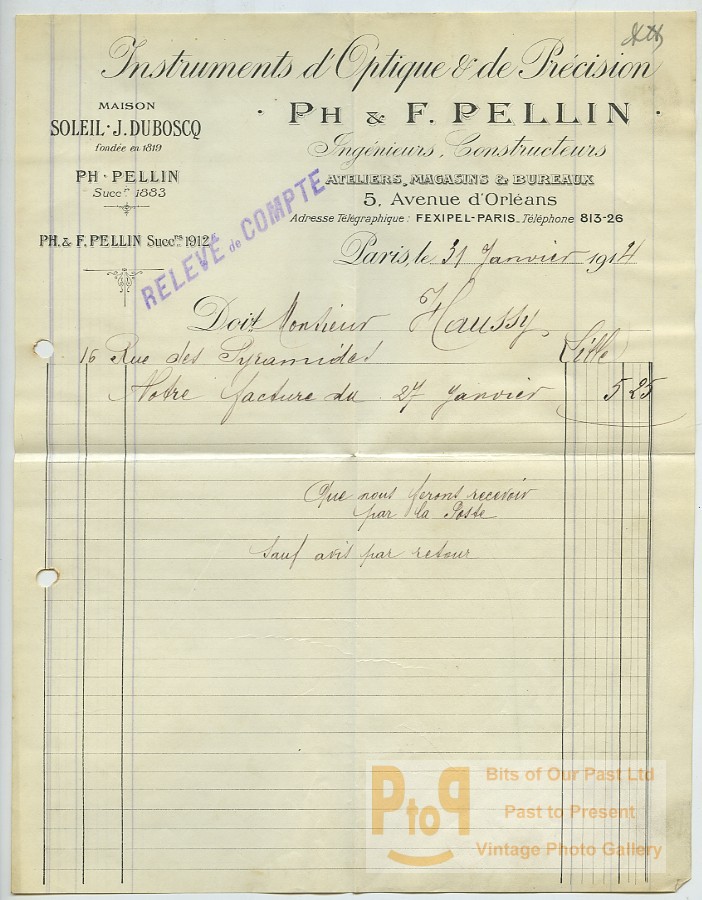 Instruments d'Optique & de Précision
MAISON
SOLEIL · J. DUBOSCQ
fondée en 1819
PH · PELLIN
Succr 1883
PH. & F. PELLIN Succrs 1912
PH & F. PELLIN
Ingénieurs, Constructeurs
ATELIERS, MAGASINS & BUREAUX
5, Avenue d'Orléans
Adresse Télégraphique : FEXIPEL-PARIS. Téléphone 813-26
RELEVÉ de COMPTE
Paris, le 31 Janvier 1914
Doit Monsieur Haussy
16 Rue des Pyramides Lille
Notre facture du 27 Janvier 5 25
Que nous ferons recevoir
par la Poste
Sauf avis par retour
PtoP
Bits of Our Past Ltd
Past to Present
Vintage Photo Gallery